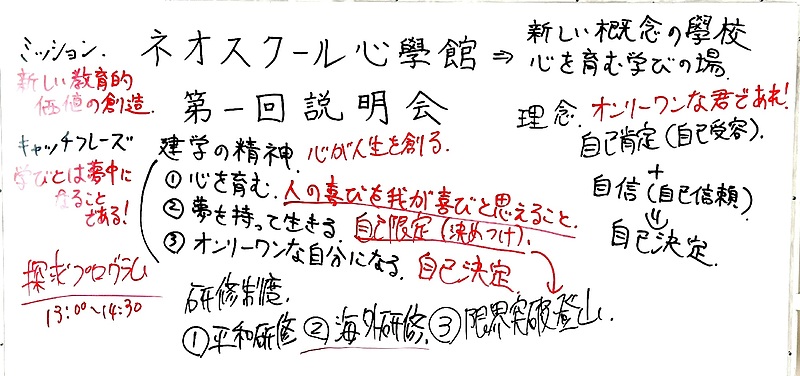 ミッション.
新しい教育的
価値の創造.
キャッチフレーズ
学びとは夢中に
なること
である!
探求プログラム
13:00~14:30
ネオスクール心學館 ⇒
新しい概念の學校
心を育む学びの場.
第一回説明会
建学の精神. 心が人生を創る.
① 心を育む. 人の喜びを我が喜びと思えること.
② 夢を持って生きる. 自己限定(決めつけ).
③ オンリーワンな自分になる. 自己決定
理念. オンリーワンな君であれ!
自己肯定(自己受容).
+
自信(自己信頼)
⇓
自己決定.
研修制度.
①平和研修 ②海外研修. ③限界突破登山.